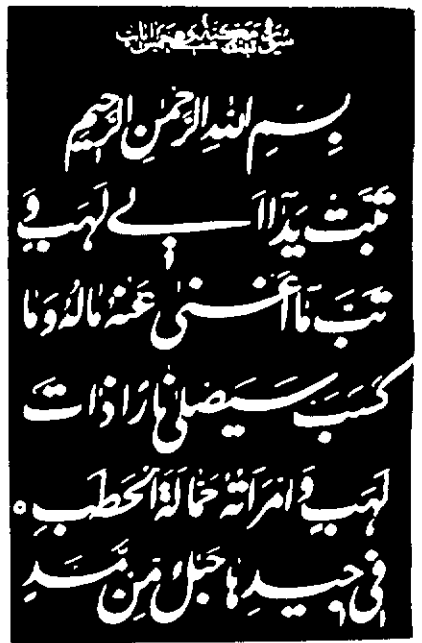 سورة مكية وهي خمس آيات
بِسْمِ اللهِ الرَّحْمٰنِ الرَّحِيْمِ
تَبَّتْ يَدَآ اَبِے لَهَبٍ وَّ
تَبَّ مَا اَغْنٰى عَنْهُ مَالُهُ وَمَا
كَسَبَ سَيَصْلٰى نَارًا ذَاتَ
لَهَبٍ وَّامْرَاَتُهُ حَمَّالَةَ الْحَطَبِ ○
فِى جِيدِهَا حَبْلٌ مِّنْ مَّسَدٍ